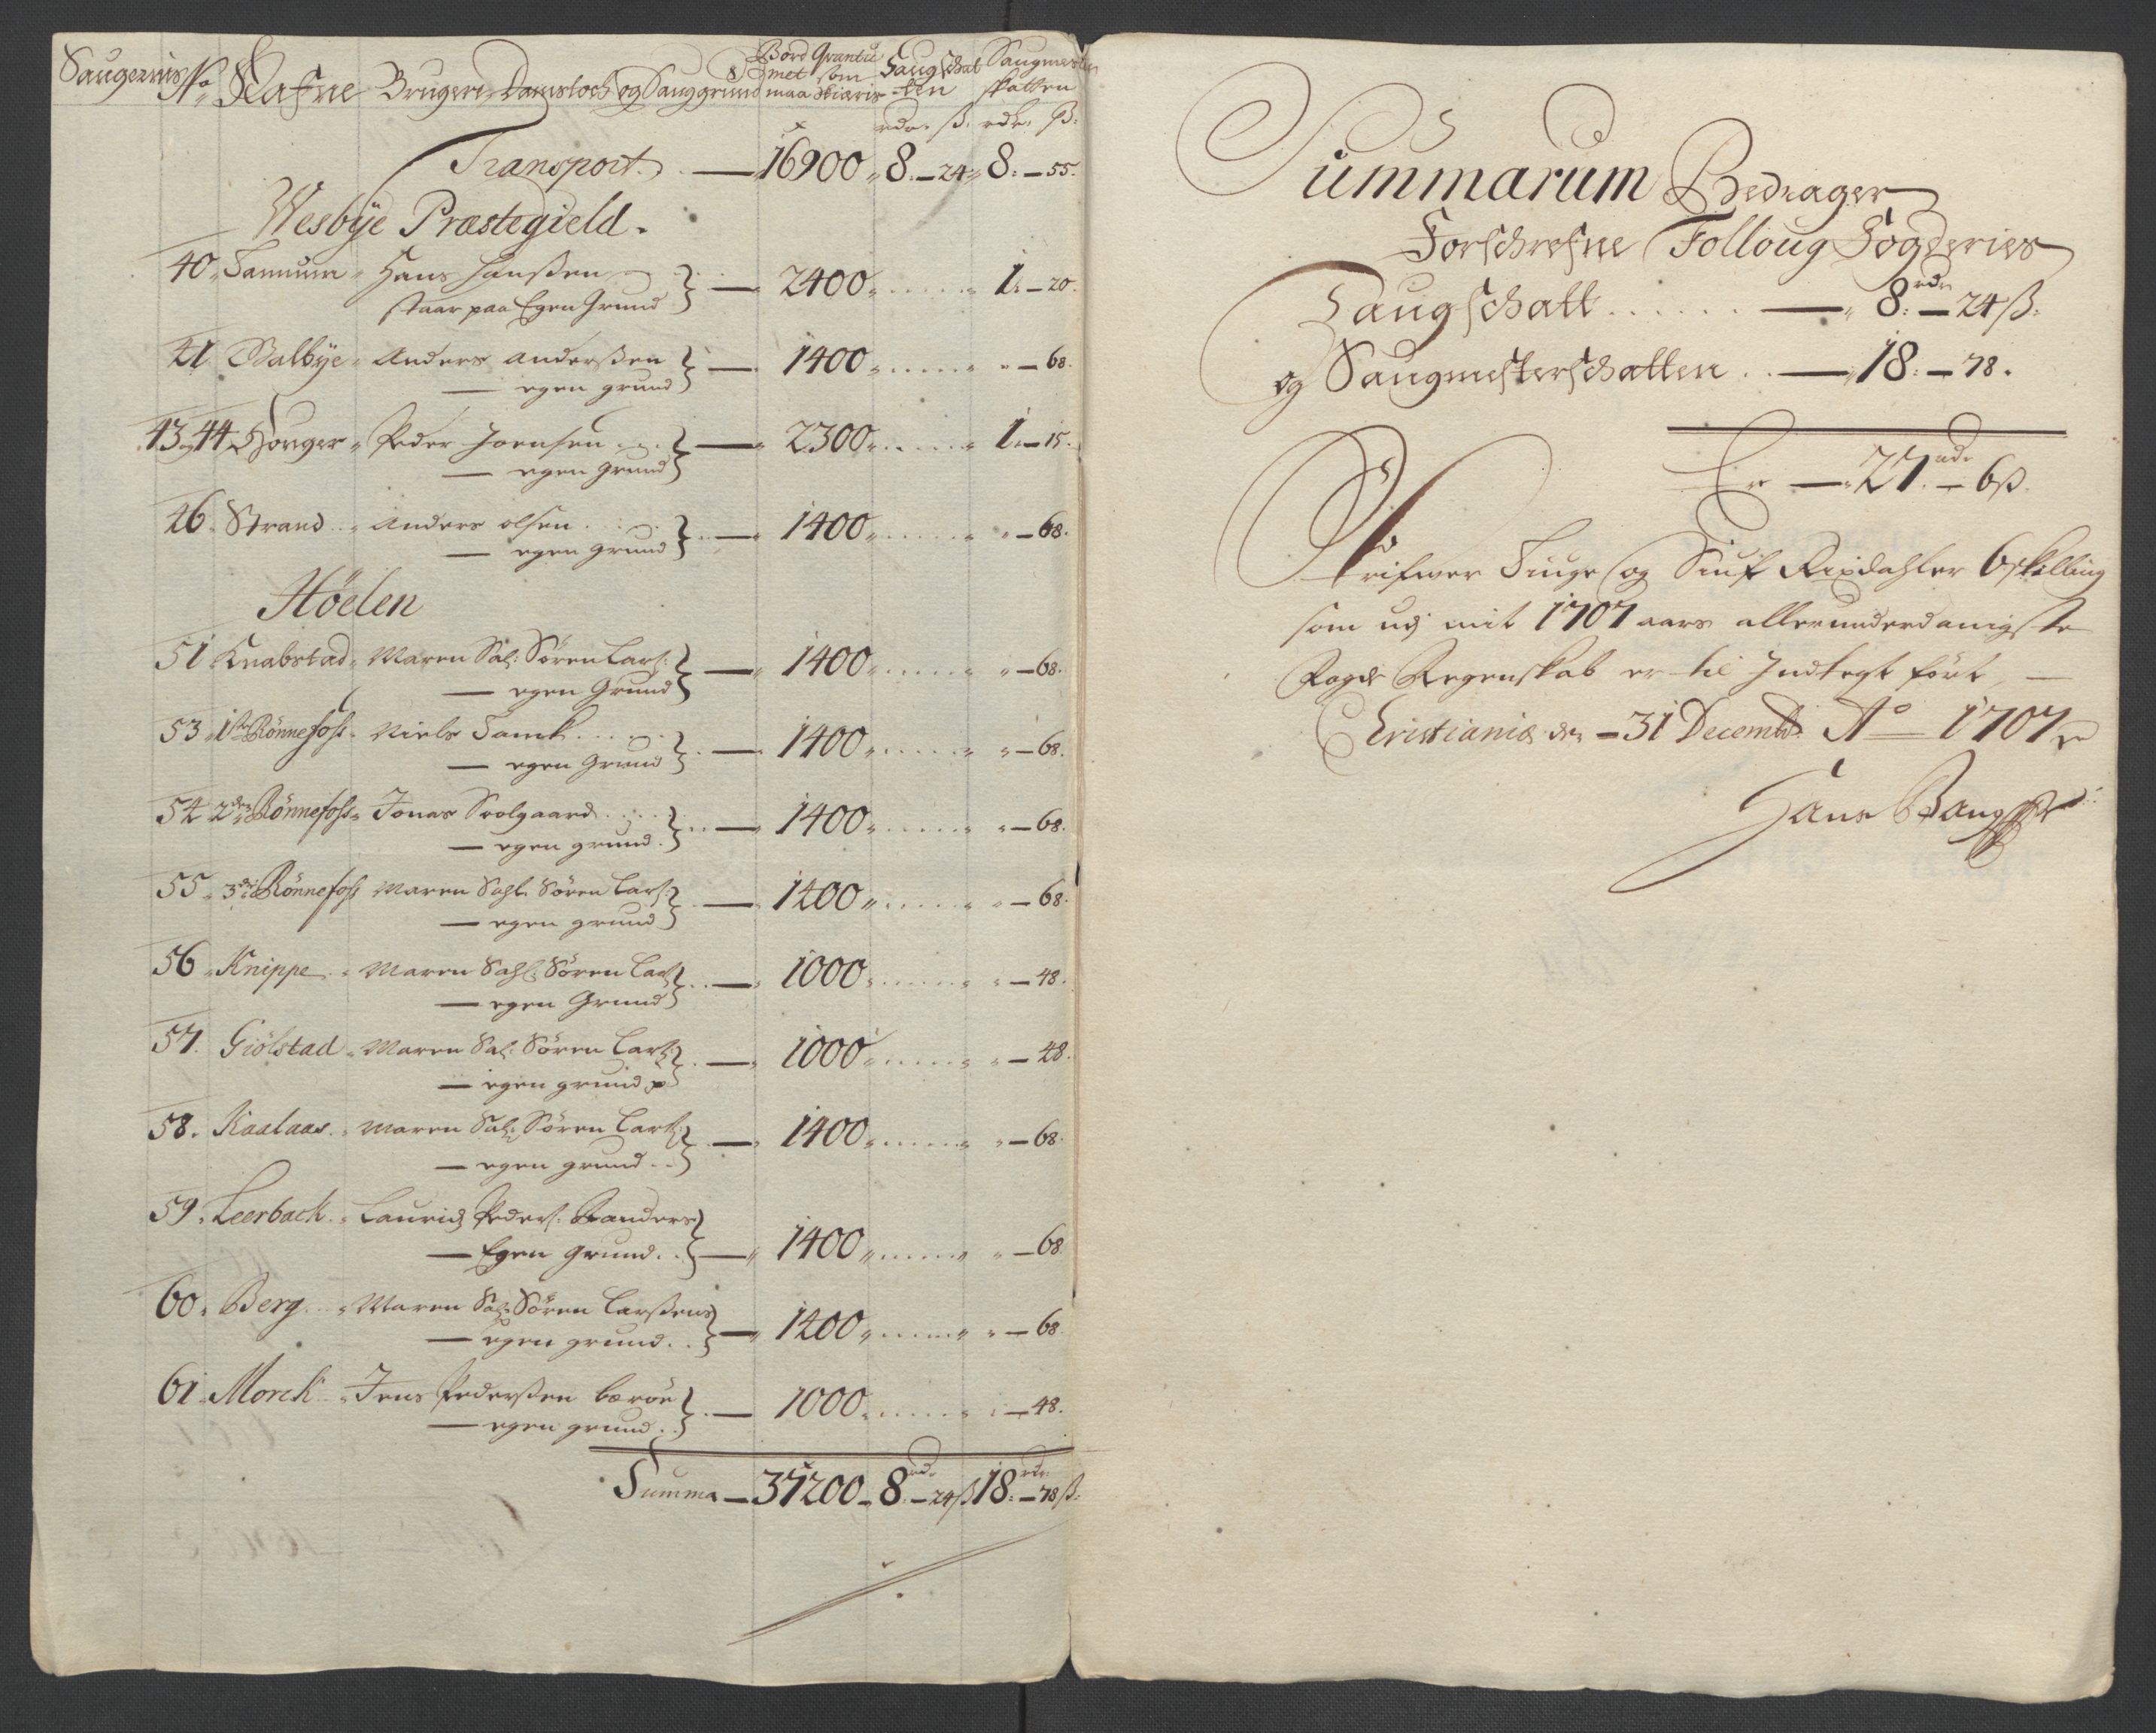 Saugernis No Nafne Brugere Damstoch og Sauggrund Bord Qvantu met som maa skiæris Saugschat ten Saugmester skatten
rdr. ß. rdr. ß:
Transport. — 16900 „ 8. – 24 „ 8: – 55.
Wesbÿe Præstegield.
40. Hans Hanßen
staar paa Egen Grund — 2400 „ . . . . . „ 1. – 20.
41 Balbÿe „ Anders Anderßen
— egen grund — 1400 „ . . . . . „ „ – 68.
43. 44 Horger „ Peder Joensen . . .
— egen Grund — 2300 „ . . . . . „ 1. – 15.
46. Strand . . „ Anders olsen . . .
— egen grund — 1400 „ . . . . . „ „ – 68.
Höelen
51 Knabstad „ Maren Sal: Sören Lars:
— egen Grund — 1400 „ . . . . . „ „ – 68.
53 „ 1ste Rönnefoss „ Niels . . . .
— egen Grund — 1400 „ . . . . . „ „ – 68.
54 2den Rönnefoss „ Jonas Soolgaard . . . .
— egen grund. — 1400 „ . . . . . „ „ – 68.
55 „ 3die Rönnefoss Maren Sahl: Sören Lars:
— egen grund — 1400 „ . . . . . „ „ – 68.
56 „ Knippe „ Maren Sahl: Sören Lars:
— egen Grund — 1000 „ . . . . . „ „ – 48.
57. Giölstad „ Maren Sal: Sören Lars:
— egen grund — 1000 „ . . . . . „ „ – 48.
58. Kaalaas „ Maren Sal: Sören Lars:
— egen grund . . — 1400 „ . . . . . „ „ – 68.
59. Leerbach „ Laurid Peders: Randers
— Egen Grund . . — 1400 „ . . . . . „ „ – 68.
60. Berg „ Maren Sal: Sören Larßens
— egen grund . . — 1400 „ . . . . . „ „ – 68.
61 Morch „ Jens Pederßen bærøe
— egen grund . . — 1000 . . . . . „ – 48.
Summa – 37200 – 8 rdr. – 24 ß 18 rdr. – 78 ß:
Summarum Bedrager
Forschrefne Folloug Fogderies
Saugschatt . . . . . . — 8: rdr – 24 ß:
og Saugmesterschatten . . — 18: – 78.
Er — 27. rdr – 6 ß.
Schrifver Tiuge og Siuf Rixdahler 6 skilling
som udj mit 1707 aars allerunderdanigste
Fogde Regenskab er til Indtegt fört, —
Christiania den – 31 Decembr: Ao 1707
Hans Bang